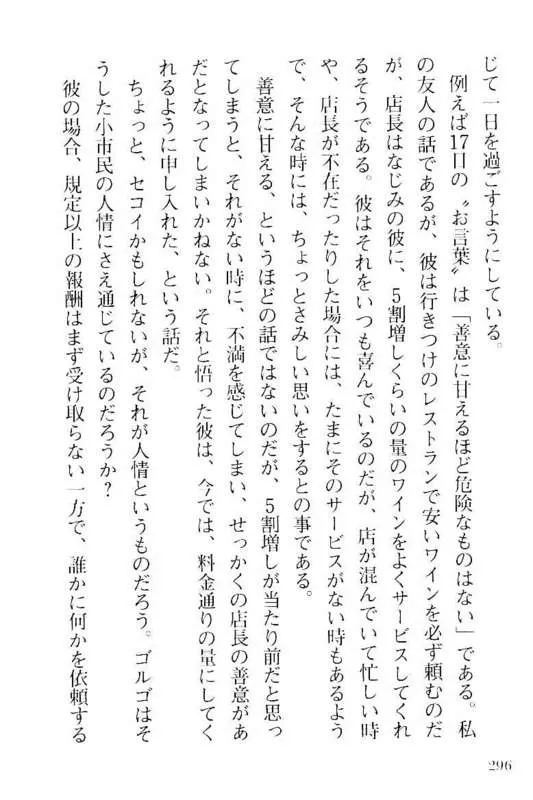 じて一日を過ごすようにしている。
例えば17日の〝お言葉〟は「善意に甘えるほど危険なものはない」である。私
の友人の話であるが、彼は行きつけのレストランで安いワインを必ず頼むのだ
が、店長はなじみの彼に、5割増しくらいの量のワインをよくサービスしてくれ
るそうである。彼はそれをいつも喜んでいるのだが、店が混んでいて忙しい時
や、店長が不在だったりした場合には、たまにそのサービスがない時もあるよう
で、そんな時には、ちょっとさみしい思いをするとの事である。
善意に甘える、というほどの話ではないのだが、5割増しが当たり前だと思っ
てしまうと、それがない時に、不満を感じてしまい、せっかくの店長の善意があ
だとなってしまいかねない。それと悟った彼は、今では、料金通りの量にしてく
れるように申し入れた、という話だ。
ちょっと、セコイかもしれないが、それが人情というものだろう。ゴルゴはそ
うした小市民の人情にさえ通じているのだろうか?
彼の場合、規定以上の報酬はまず受け取らない一方で、誰かに何かを依頼する
296